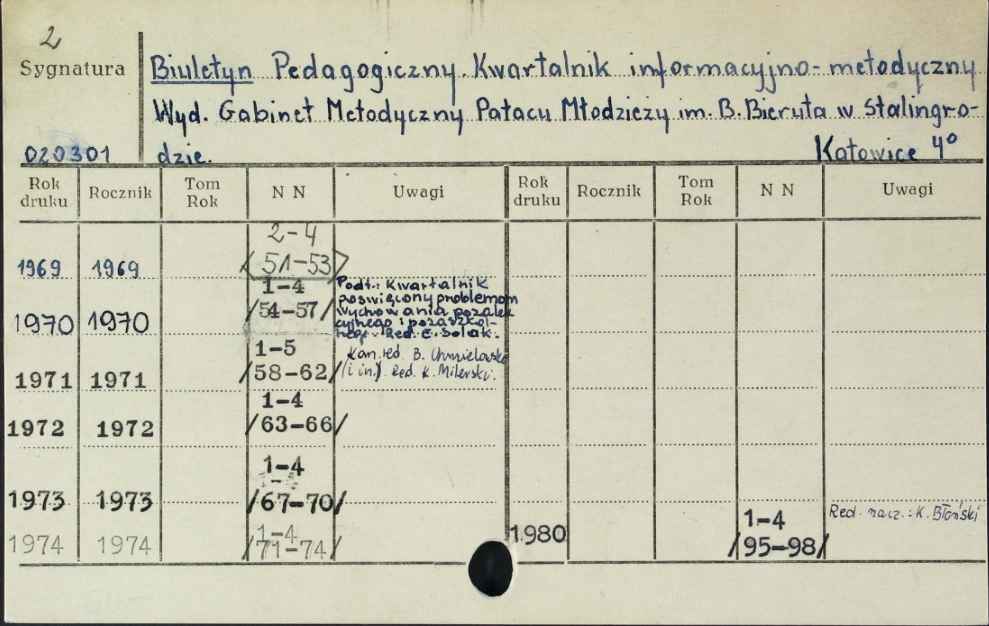 2
Sygnatura
Biuletyn Pedagogiczny. Kwartalnik informacyjno-metodyczny
Wyd. Gabinet Metodyczny Pałacu Młodzieży im. B. Bieruta w Stalingro-
020301 dzie. Katowice 4°
Rok druku Rocznik Tom Rok N N Uwagi Rok druku Rocznik Tom Rok N N Uwagi
2-4
1969 1969 /51-53/
1-4 Podt.: Kwartalnik
poświęcony problemom
1970 1970 /54-57/ wychowania pozalek
cyjnego i pozaszkol-
nego. Red. E. Solak.
1-5 Kom. red. B.
1971 1971 /58-62/ (i in.) Red. K. Milerski.
1-4
1972 1972 /63-66/
1-4
1973 1973 /67-70/
1-4 1-4 Red. nacz.: K. Błoński
1974 1974 /71-74/ 1980 /95-98/